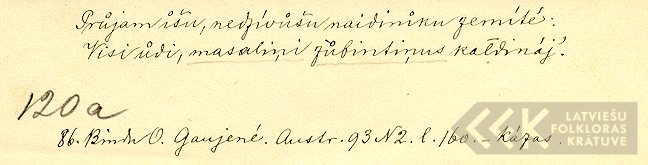 Průjam ůšu, nedzívůšu naidinīku zemīté:
Visi ůdi, masaliņi zůbintiņus kaldináj'.
120a
86. Bindu O. Gaujené. Austr. 93 N2. l. 160. – Kāzas.
LATVIEŠU
FOLKLORAS
KRĀTUVE